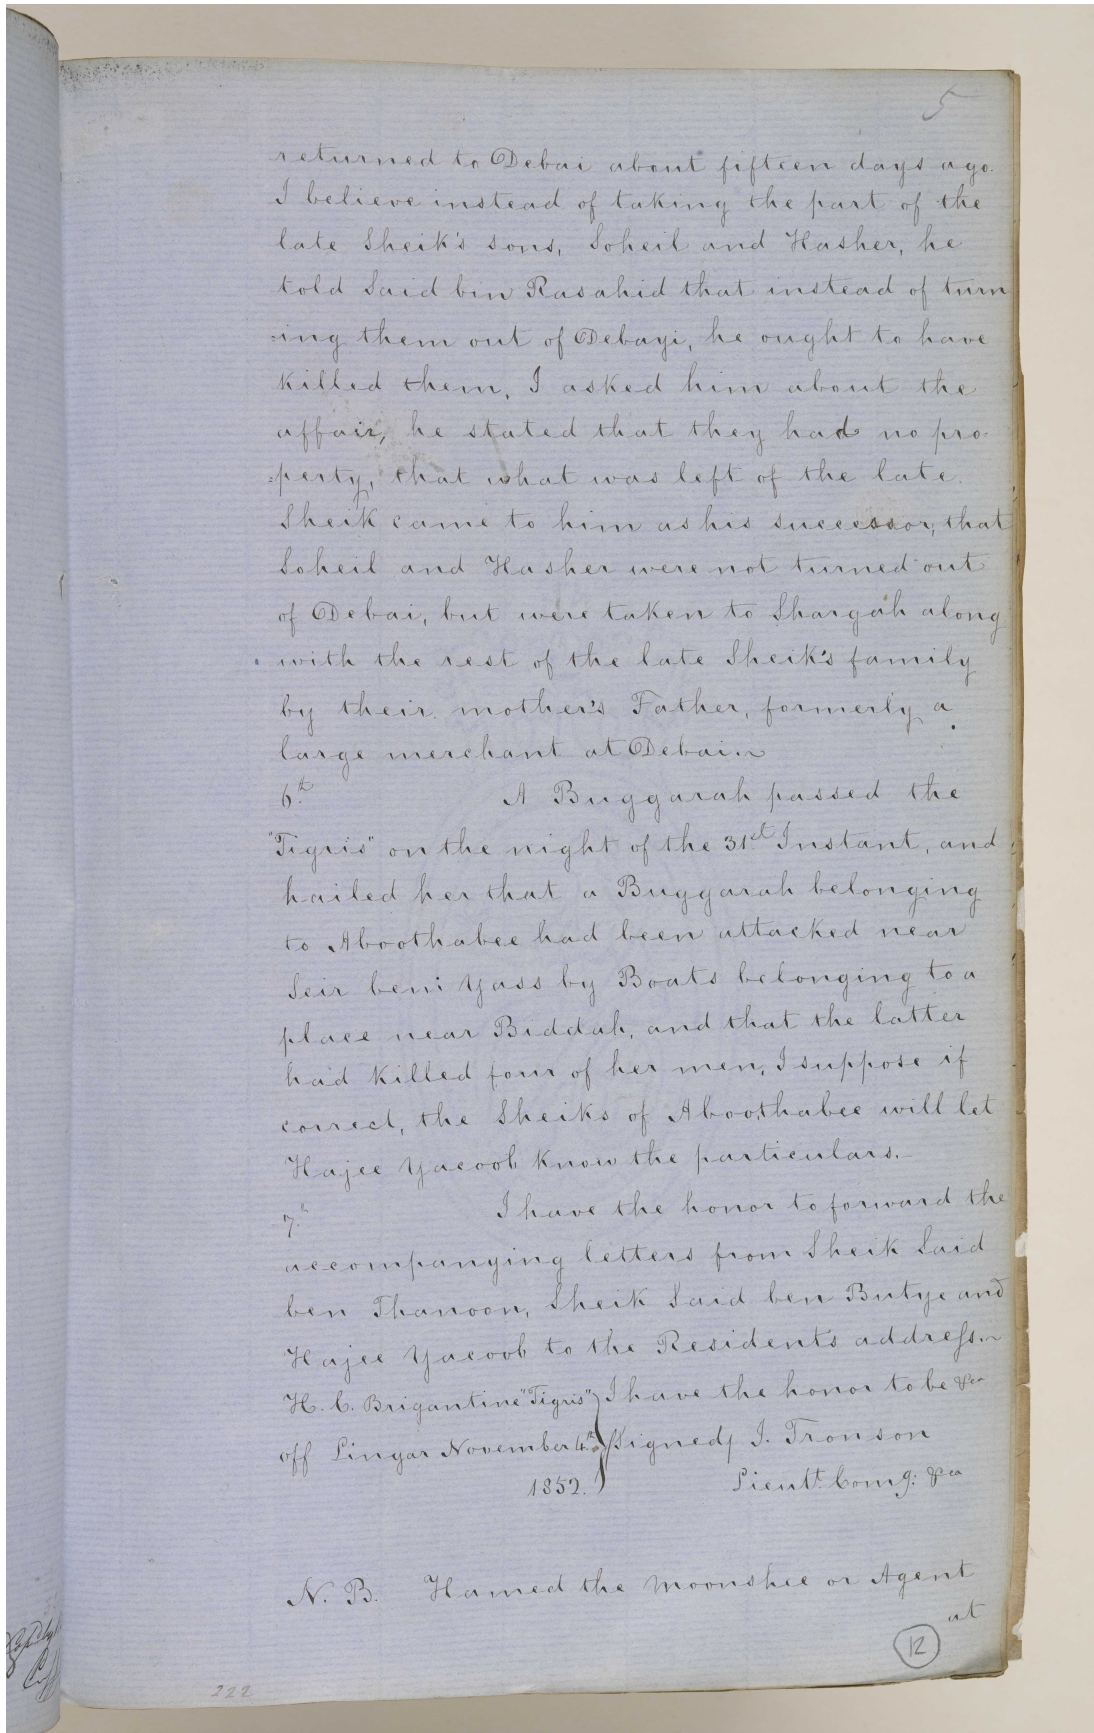 5
returned to Debai about fifteen days ago.
I believe instead of taking the part of the
late Sheik's sons, Soheil and Hasher, he
told Said bin Rasahid that instead of turn
=ing them out of Debayi, he ought to have
killed them, I asked him about the
affair, he stated that they had no pro-
=perty, that what was left of the late
Sheik came to him as his successor, that
Soheil and Hasher were not turned out
of Debai, but were taken to Shargah along
with the rest of the late Sheik's family
by their mother's Father, formerly a
large merchant at Debai.~
6.th A Buggarah passed the
"Tigris" on the night of the 31st Instant, and
hailed her that a Buggarah belonging
to Aboothabee had been attacked near
Seir beni Yass by Boats belonging to a
place near Biddah, and that the latter
had killed four of her men, I suppose if
correct, the Sheiks of Aboothabee will let
Hajee Yacoob know the particulars.-
7.th I have the honor to forward the
accompanying letters from Sheik Said
ben Thanoon, Sheik Said ben Butye and
Hajee Yacoob to the Residents address.~
H. C. Brigantine "Tigris" } I have the honor to be &ca
off Lingar November 4th } (Signed) J. Tronson
1852. } Lieutt. Comg: &ca
N. B. Hamed the Moonshee or Agent
at
12
222